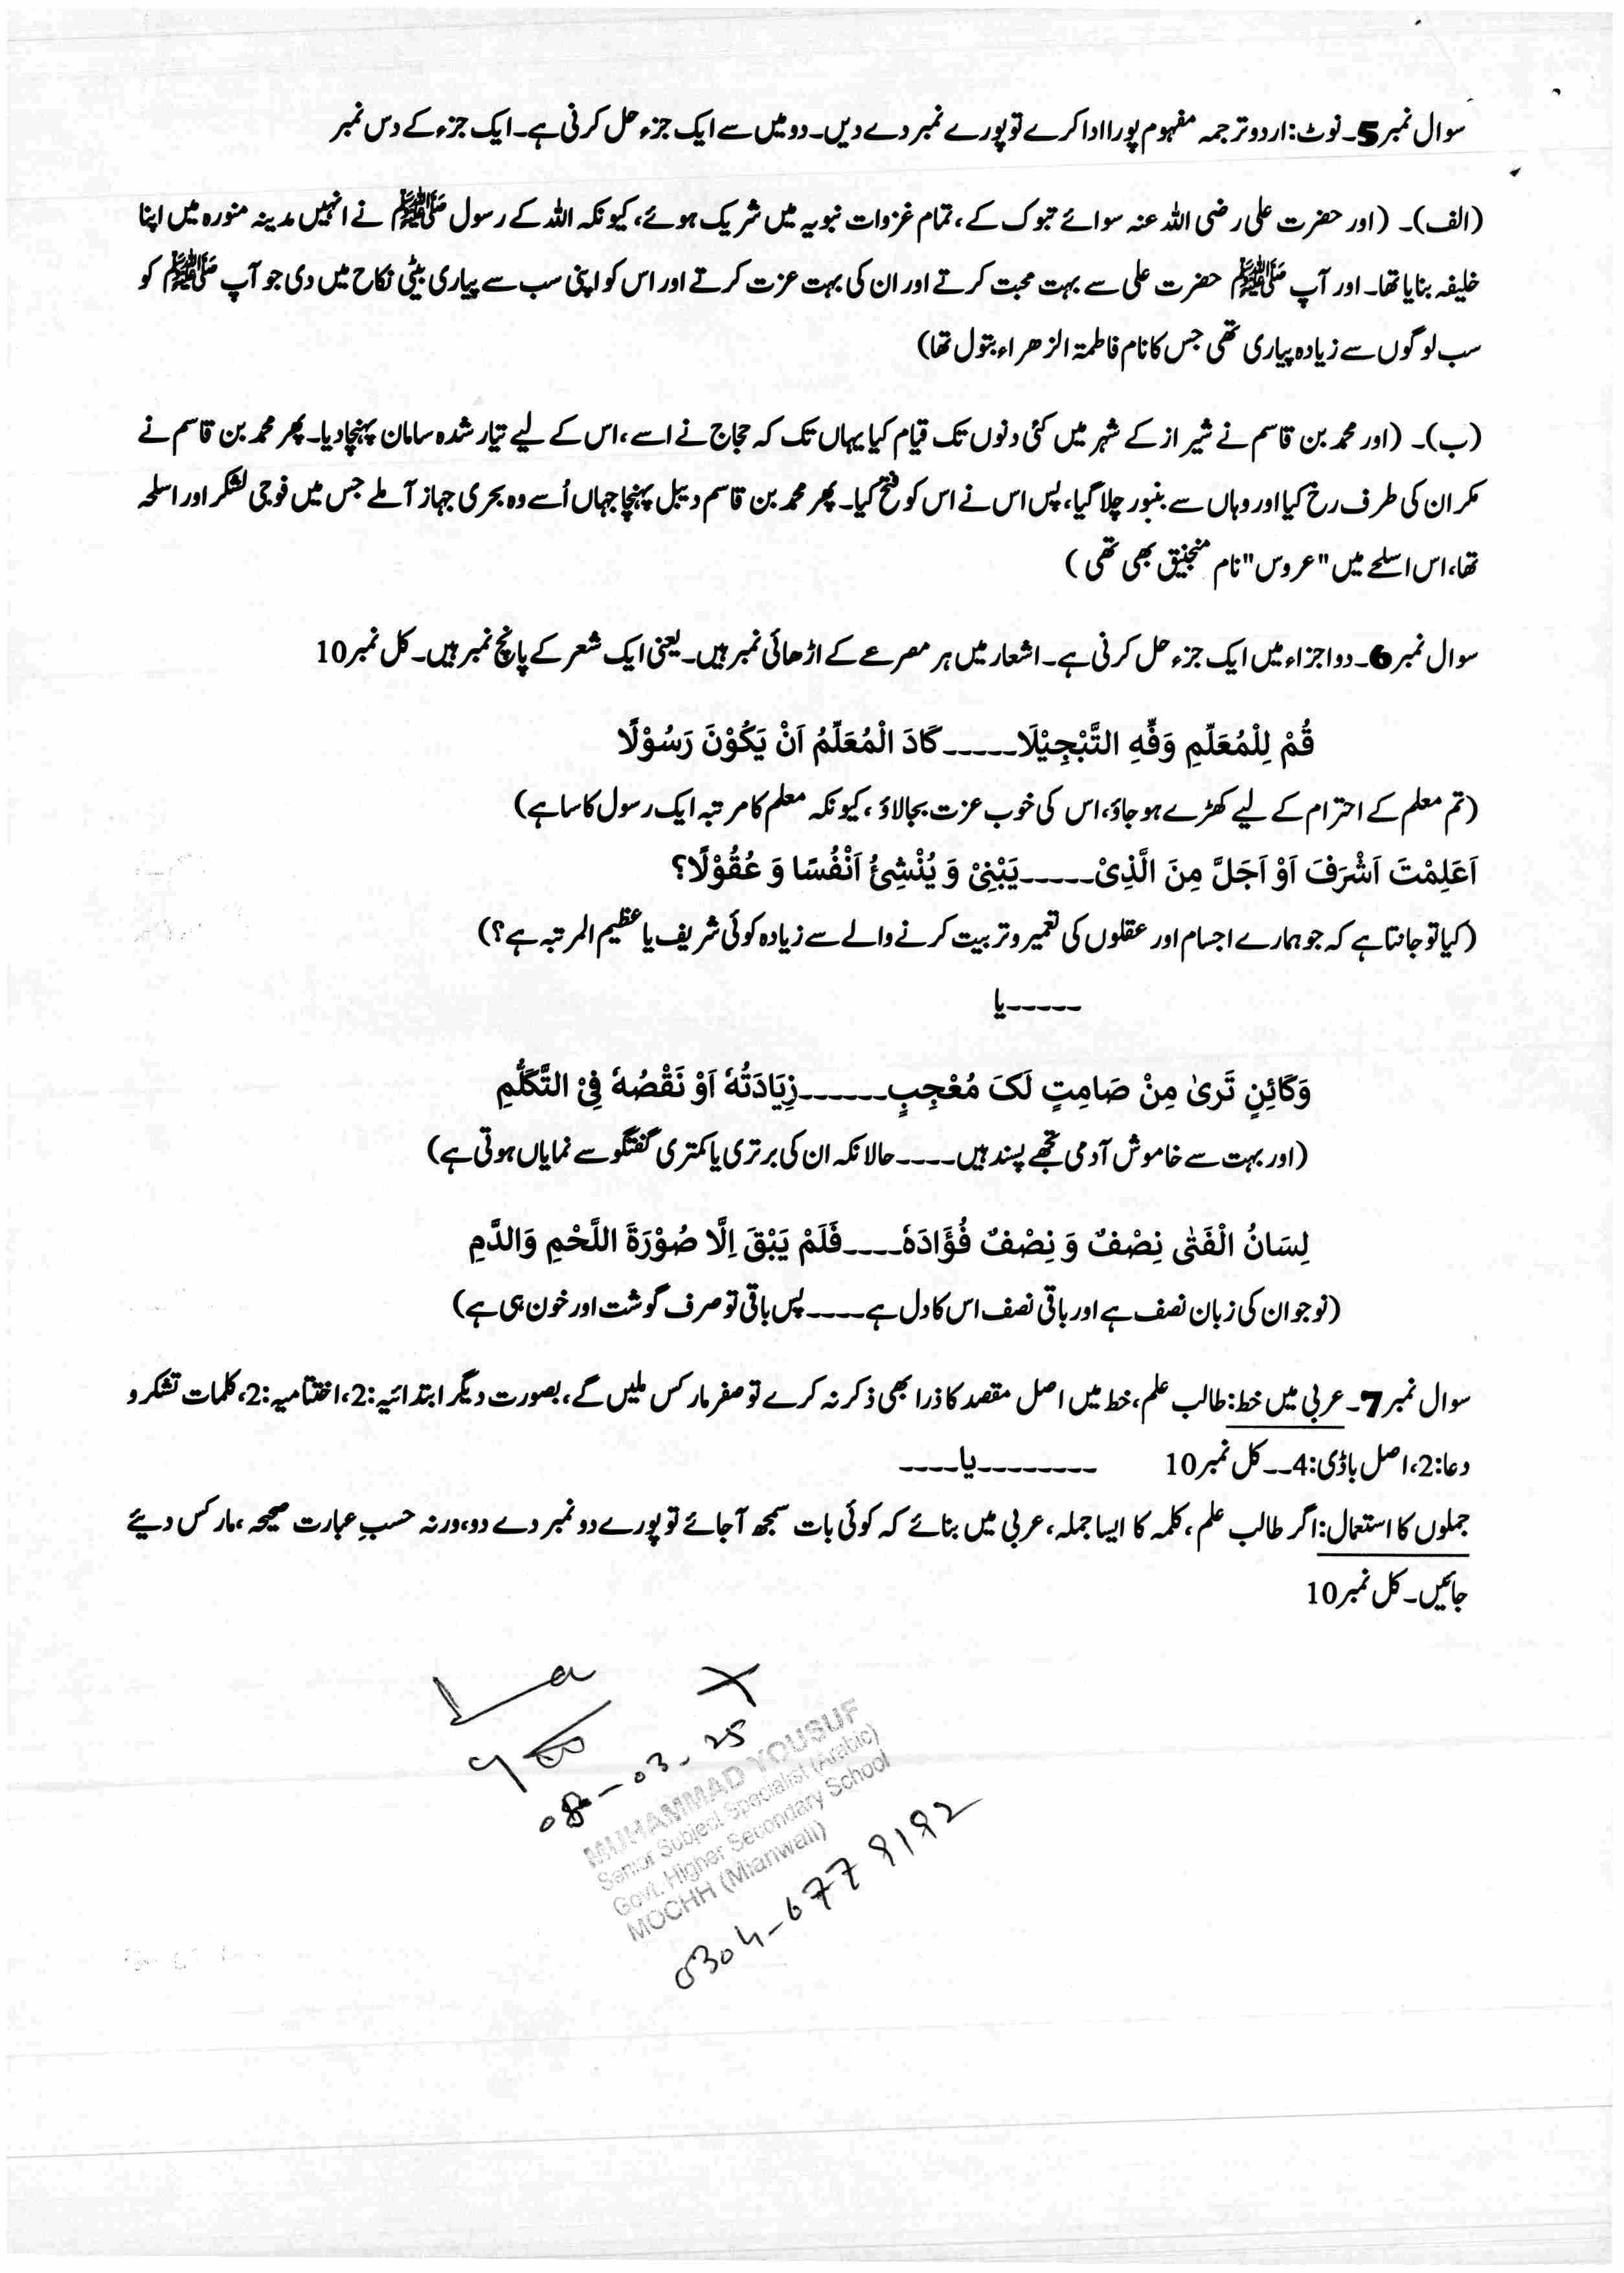 سوال نمبر5۔ نوٹ: اردو ترجمہ مفہوم پورا ادا کرے تو پورے نمبر دے دیں۔ دو میں سے ایک جزء حل کرنی ہے۔ ایک جزء کے دس نمبر
(الف)۔ (اور حضرت علی رضی اللہ عنہ سوائے تبوک کے، تمام غزوات نبویہ میں شریک ہوئے، کیونکہ اللہ کے رسول ﷺ نے انہیں مدینہ منورہ میں اپنا
خلیفہ بنایا تھا۔ اور آپ ﷺ حضرت علی سے بہت محبت کرتے اور ان کی بہت عزت کرتے اور اس کو اپنی سب سے پیاری بیٹی نکاح میں دی جو آپ ﷺ کو
سب لوگوں سے زیادہ پیاری تھی جس کا نام فاطمۃ الزھراء بتول تھا)
(ب)۔ (اور محمد بن قاسم نے شیراز کے شہر میں کئی دنوں تک قیام کیا یہاں تک کہ حجاج نے اسے، اس کے لیے تیار شدہ سامان پہنچا دیا۔ پھر محمد بن قاسم نے
مکران کی طرف رخ کیا اور وہاں سے بنبور چلا گیا، پس اس نے اس کو فتح کیا۔ پھر محمد بن قاسم دیبل پہنچا جہاں اُسے وہ بحری جہاز آملے جس میں فوجی لشکر اور اسلحہ
تھا، اس اسلحے میں "عروس" نام منجنیق بھی تھی )
سوال نمبر6۔ دو اجزاء میں ایک جزء حل کرنی ہے۔ اشعار میں ہر مصرعے کے اڑھائی نمبر ہیں۔ یعنی ایک شعر کے پانچ نمبر ہیں۔ کل نمبر10
قُمْ لِلْمُعَلِّمِ وَفِّهِ التَّبْجِيْلَا-----كَادَ الْمُعَلِّمُ اَنْ يَكُوْنَ رَسُوْلًا
(تم معلم کے احترام کے لیے کھڑے ہو جاؤ، اس کی خوب عزت بجالاؤ، کیونکہ معلم کا مرتبہ ایک رسول کا سا ہے)
اَعَلِمْتَ اَشْرَفَ اَوْ اَجَلَّ مِنَ الَّذِیْ-----يَبْنِیْ وَ يُنْشِئُ اَنْفُسًا وَ عُقُوْلًا؟
(کیا تو جانتا ہے کہ جو ہمارے اجسام اور عقلوں کی تعمیر و تربیت کرنے والے سے زیادہ کوئی شریف یا عظیم المرتبہ ہے؟)
-----یا
وَكَائِنٍ تَریٰ مِنْ صَامِتٍ لَکَ مُعْجِبٍ------زِيَادَتُهٗ اَوْ نَقْصُهٗ فِیْ التَّكَلُّمِ
(اور بہت سے خاموش آدمی تجھے پسند ہیں----حالانکہ ان کی برتری یا کمتری گفتگو سے نمایاں ہوتی ہے)
لِسَانُ الْفَتٰی نِصْفٌ وَ نِصْفٌ فُؤَادَهٗ----فَلَمْ يَبْقَ اِلَّا صُوْرَةَ اللَّحْمِ وَالدَّمِ
(نوجوان کی زبان نصف ہے اور باقی نصف اس کا دل ہے----پس باقی تو صرف گوشت اور خون ہی ہے)
سوال نمبر7۔ عربی میں خط: طالب علم، خط میں اصل مقصد کا ذرا بھی ذکر نہ کرے تو صفر مارکس ملیں گے، بصورت دیگر ابتدائیہ:2، اختتامیہ:2، کلمات تشکر و
دعا:2، اصل باڈی:4--کل نمبر10 --------یا----
جملوں کا استعمال: اگر طالب علم، کلمہ کا ایسا جملہ، عربی میں بنائے کہ کوئی بات سمجھ آجائے تو پورے دو نمبر دے دو، ورنہ حسبِ عبارت صحیحہ، مارکس دیئے
جائیں۔ کل نمبر10
08-03-25
MUHAMMAD YOUSUF
Senior Subject Specialist (Arabic)
Govt. Higher Secondary School
MOCHH (Mianwali)
0304-6779192